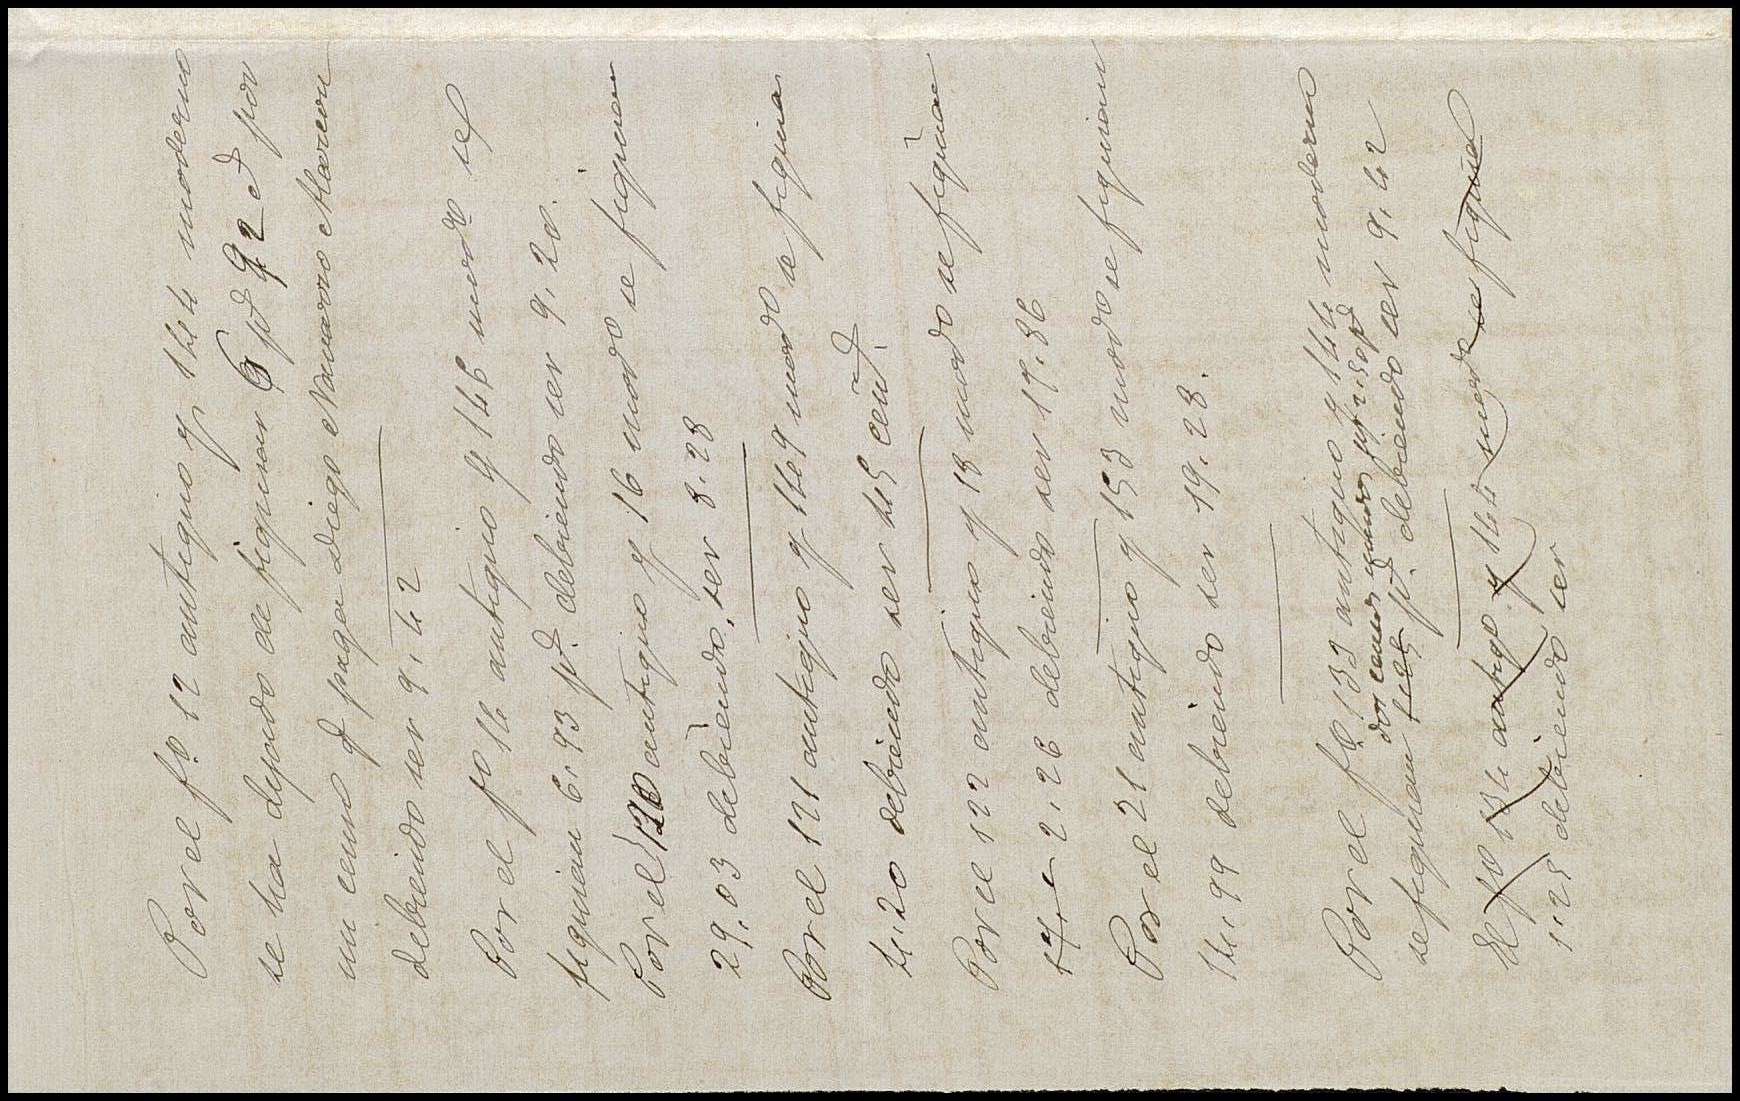 Por el fo 12 antiguo y 144 moderno
se ha dejando de figurar 6 pts 92 cts por
un censo q paga Diego Navarro Alarcon
debiendo ser 9,42
Por el fo 14 antiguo y 146 modo se
figuran 6,93 pts debiendo ser 9,20.
Por el 120 antiguo y 16 modo se figuran
29,03 debiendo, ser 8,28
Por el 121 antiguo y 149 modo se figuran
4,20 debiendo ser 45 cent.
Por el 122 antiguo y 18 modo se figuran
2,26 debiendo ser 17,36
Por el 21 antiguo y 153 modo se figuran
14,99 debiendo ser 19,28.
Por el fo 133 antiguo y 144 moderno
dos censos
se figuran pts. debiendo ser 9,42
El fo 134 antigo y 144 modo se figura
1,25 debiendo ser